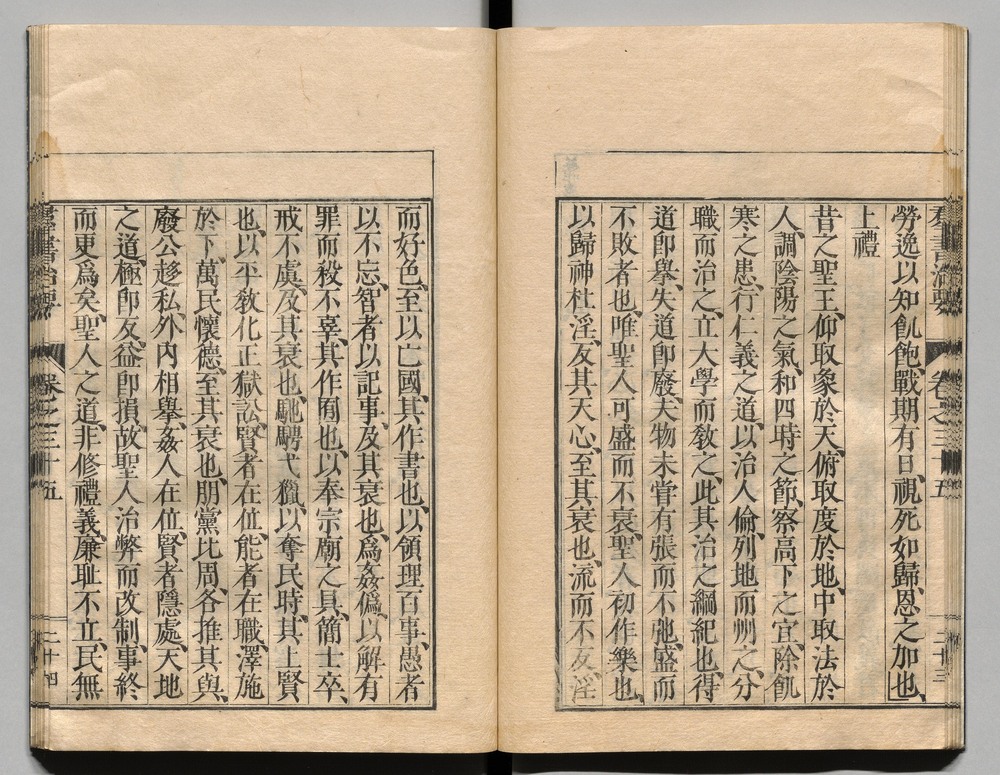 羣書治要 卷之三十五 二十三
勞逸以知飢飽戰期有日視死如歸恩之加也
上禮
昔之聖王仰取象於天俯取度於地中取法於
人調陰陽之氣和四時之節察高下之宜除飢
寒之患行仁義之道以治人倫列地而州之分
職而治之立大學而敎之此其治之綱紀也得
道卽擧失道卽廢夫物未嘗有張而不弛盛而
不敗者也唯聖人可盛而不衰聖人初作樂也
以歸神杜淫反其天心至其衰也流而不反淫
而好色至以亡國其作書也以領理百事愚者
以不忘智者以記事及其衰也爲姦僞以解有
罪而殺不辜其作囿也以奉宗廟之具簡士卒
戒不虞及其衰也馳騁弋獵以奪民時其上賢
也以平敎化正獄訟賢者在位能者在職澤施
於下萬民懷德至其衰也朋黨比周各推其與
廢公趍私外內相擧姦人在位賢者隱處天地
之道極卽反益卽損故聖人治弊而改制事終
而更爲矣聖人之道非修禮義廉耻不立民無
羣書治要 卷之三十五 二十四